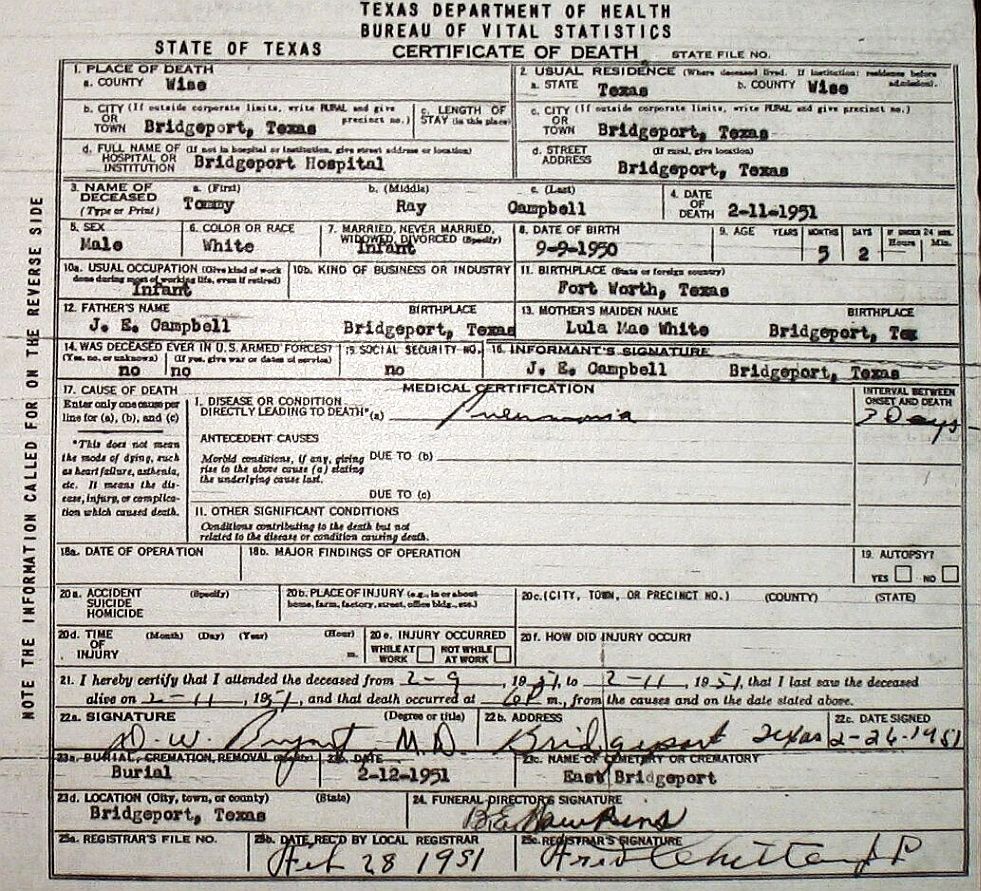 TEXAS DEPARTMENT OF HEALTH
BUREAU OF VITAL STATISTICS
STATE OF TEXAS CERTIFICATE OF DEATH STATE FILE NO.
NOTE THE INFORMATION CALLED FOR ON THE REVERSE SIDE
1. PLACE OF DEATH
a. COUNTY Wise
2. USUAL RESIDENCE (Where deceased lived. If institution: residence before admission).
a. STATE Texas b. COUNTY Wise
b. CITY (If outside corporate limits, write RURAL and give precinct no.)
OR TOWN Bridgeport, Texas
c. LENGTH OF STAY (in this place)
c. CITY (If outside corporate limits, write RURAL and give precinct no.)
OR TOWN Bridgeport, Texas
d. FULL NAME OF (If not in hospital or institution, give street address or location)
HOSPITAL OR INSTITUTION Bridgeport Hospital
d. STREET ADDRESS (If rural, give location)
Bridgeport, Texas
3. NAME OF DECEASED (Type or Print) a. (First) b. (Middle) c. (Last)
Tommy Ray Campbell
4. DATE OF DEATH 2-11-1951
5. SEX
Male
6. COLOR OR RACE
White
7. MARRIED, NEVER MARRIED, WIDOWED, DIVORCED (Specify)
Infant
8. DATE OF BIRTH
9-9-1950
9. AGE YEARS MONTHS DAYS IF UNDER 24 HRS. Hours Min.
5 2
10a. USUAL OCCUPATION (Give kind of work done during most of working life, even if retired)
Infant
10b. KIND OF BUSINESS OR INDUSTRY
11. BIRTHPLACE (State or foreign country)
Fort Worth, Texas
12. FATHER'S NAME BIRTHPLACE
J. E. Campbell Bridgeport, Texas
13. MOTHER'S MAIDEN NAME BIRTHPLACE
Lula Mae White Bridgeport, Tex
14. WAS DECEASED EVER IN U.S. ARMED FORCES?
(Yes, no, or unknown) (If yes, give war or dates of service)
no no
15. SOCIAL SECURITY NO.
no
16. INFORMANT'S SIGNATURE
J. E. Campbell Bridgeport, Texas
17. CAUSE OF DEATH
Enter only one cause per line for (a), (b), and (c)
*This does not mean the mode of dying, such as heart failure, asthenia, etc. It means the disease, injury, or complication which caused death.
MEDICAL CERTIFICATION
INTERVAL BETWEEN ONSET AND DEATH
I. DISEASE OR CONDITION
DIRECTLY LEADING TO DEATH* (a) Pneumonia 3 Days
ANTECEDENT CAUSES
Morbid conditions, if any, giving rise to the above cause (a) stating the underlying cause last.
DUE TO (b)
DUE TO (c)
II. OTHER SIGNIFICANT CONDITIONS
Conditions contributing to the death but not related to the disease or condition causing death.
18a. DATE OF OPERATION
18b. MAJOR FINDINGS OF OPERATION
19. AUTOPSY?
YES NO
20a. ACCIDENT (Specify)
SUICIDE
HOMICIDE
20b. PLACE OF INJURY (e.g., in or about home, farm, factory, street, office bldg., etc.)
20c. (CITY, TOWN, OR PRECINCT NO.) (COUNTY) (STATE)
20d. TIME OF INJURY (Month) (Day) (Year) (Hour) m.
20e. INJURY OCCURRED
WHILE AT WORK NOT WHILE AT WORK
20f. HOW DID INJURY OCCUR?
21. I hereby certify that I attended the deceased from 2-9, 1951, to 2-11, 1951, that I last saw the deceased
alive on 2-11, 1951, and that death occurred at 6P m., from the causes and on the date stated above.
22a. SIGNATURE (Degree or title)
D. W. Bryant M.D.
22b. ADDRESS
Bridgeport Texas
22c. DATE SIGNED
2-26-1951
23a. BURIAL, CREMATION, REMOVAL (Specify)
Burial
23b. DATE
2-12-1951
23c. NAME OF CEMETERY OR CREMATORY
East Bridgeport
23d. LOCATION (City, town, or county) (State)
Bridgeport, Texas
24. FUNERAL DIRECTOR'S SIGNATURE
B.E. Hawkins
25a. REGISTRAR'S FILE NO.
25b. DATE REC'D BY LOCAL REGISTRAR
Feb 28 1951
25c. REGISTRAR'S SIGNATURE
Fred